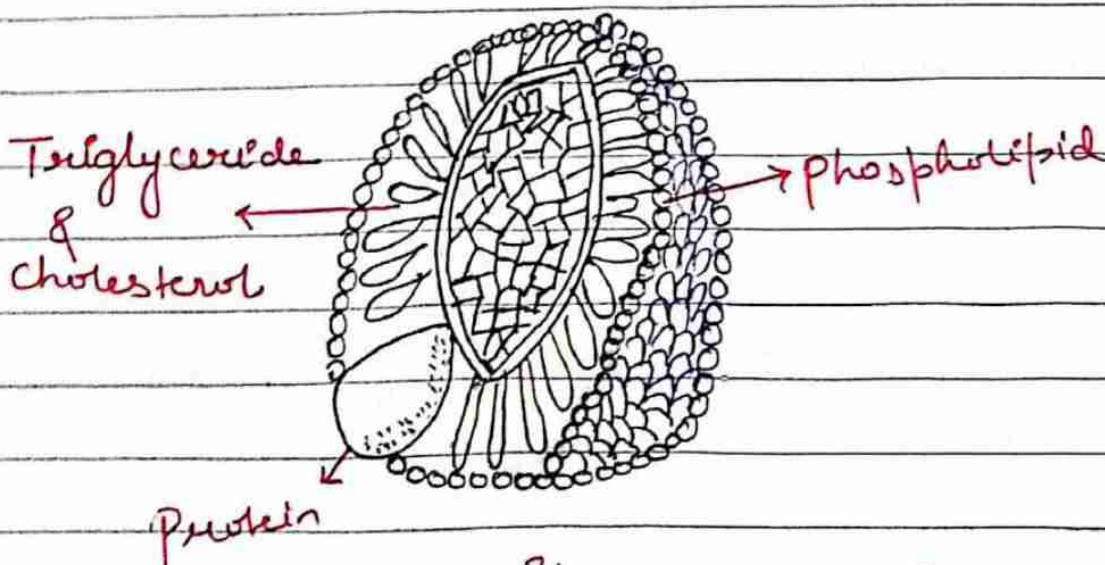 Triglyceride
&
Cholesterol
phospholipid
Protein